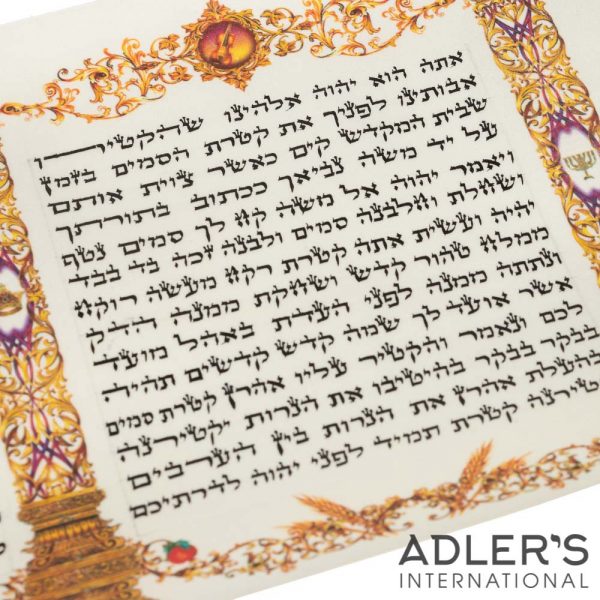 אתה הוא יהוה אלהינו שהקטירו
אבותינו לפניך את קטרת הסמים בזמן
שבית המקדש קים כאשר צוית אותם
על יד משה נביאך ככתוב בתורתך
ויאמר יהוה אל משה קח לך סמים נטף
ושחלת וחלבנה סמים ולבנה זכה בד בבד
יהיה ועשית אתה קטרת רקח מעשה רוקח
ממלח טהור קדש ושחקת ממנה הדק
ונתתה ממנה לפני העדת באהל מועד
אשר אועד לך שמה קדש קדשים תהיה
לכם ונאמר והקטיר עליו אהרן קטרת סמים
בבקר בבקר בהיטיבו את הנרות יקטירנה
ובהעלת אהרן את הנרות בין הערבים
יקטירנה קטרת תמיד לפני יהוה לדרתיכם
ADLER'S
INTERNATIONAL